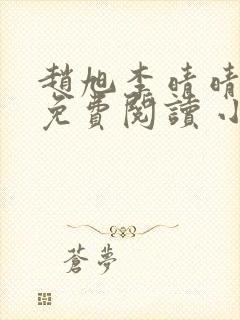 趙旭李晴晴
免費閱讀小
蒼夢